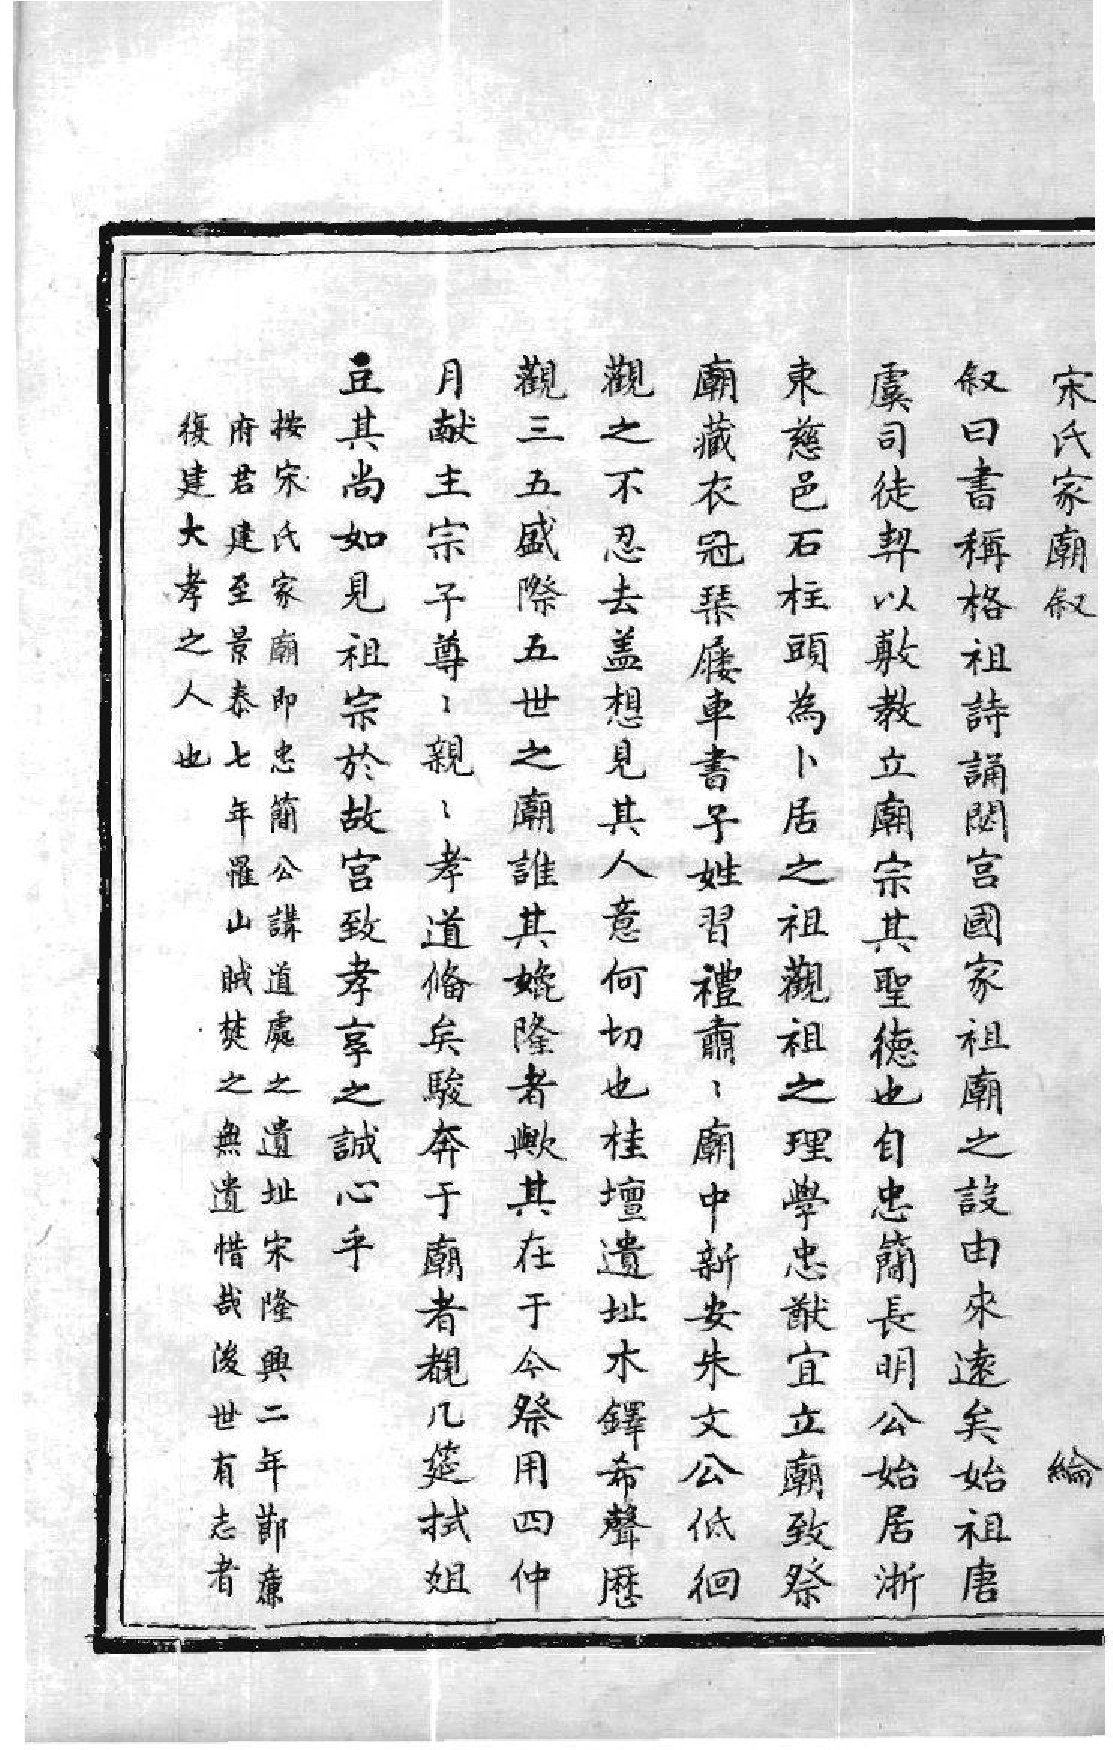 宋氏家廟叙 綸
叙曰書稱格祖詩誦閟宮國家祖廟之設由來遠矣始祖唐
虞司徒契以敷教立廟宗其聖德也自忠簡長明公始居浙
東慈邑石柱頭為卜居之祖觀祖之理學忠猷宜立廟致祭
廟藏衣冠琹屨車書子姓習禮肅〻廟中新安朱文公低徊
觀之不忍去盖想見其人意何切也桂壇遺址木鐸希聲歷
觀三五盛際五世之廟誰其媲隆者歟其在于今祭用四仲
月献主宗子尊〻親〻孝道脩矣駿奔于廟者覩几筵拭俎
豆其尚如見祖宗於故宮致孝享之誠心乎
按宋氏家廟即忠簡公講道處之遺址宋隆興二年節廉
府君建至景泰七年羅山賊焚之無遺惜哉後世有志者
復建大孝之人也